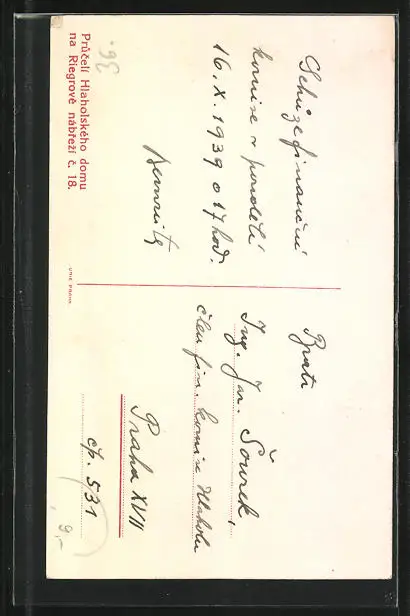 Schůze finanční
komise v pondělí
16.X.1939 o 17 hod.
Průčelí Hlaholského domu
na Riegrově nábřeží č. 18.
UNIE PRAHA
Bratr
Ing. Jar. Šourek,
člen fin. komise Hlaholu
Praha XVII
čp. 531
36.
9,-